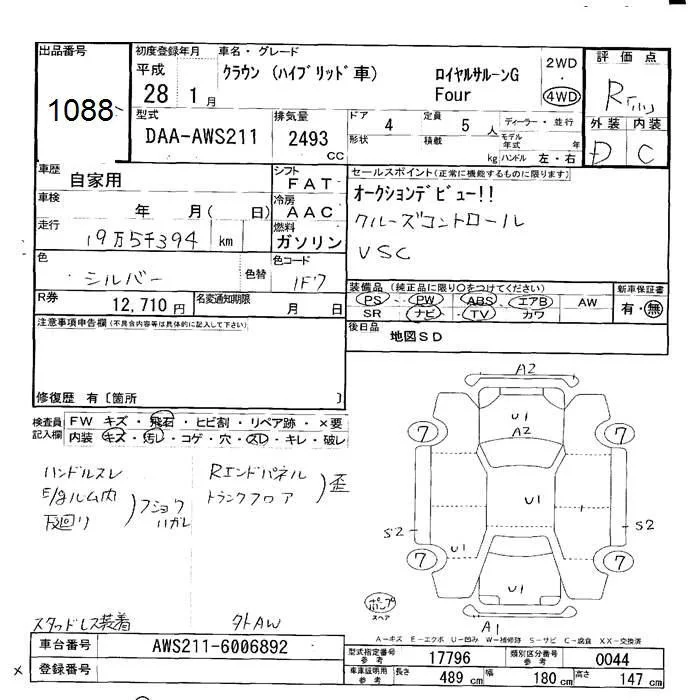 出品番号
1088
初度登録年月
平成
28 1 月
車名・グレード
クラウン (ハイブリッド車)
ロイヤルサルーンG
Four
2WD
・
4WD
評価点
R
外装 内装
D C
型式
DAA-AWS211
排気量
2493
cc
ドア
4
定員
5 人
形状
積載
kg
ディーラー・並行
モデル年式 年
ハンドル 左・右
車歴
自家用
シフト
FAT
車検
年 月( 日)
冷房
AAC
走行
19万5千394 km
燃料
ガソリン
色
シルバー
色替
色コード
1F7
R券
12,710 円
名変通知期限
月 日
セールスポイント(正常に機能するものに限ります)
オークションデビュー!!
クルーズコントロール
VSC
装備品 (純正品に限り○をつけてください)
PS ・ PW ・ ABS ・ エアB ・ AW
SR ナビ ・ TV ・ カワ
新車保証書
有・無
後日品
地図SD
注意事項申告欄(不具合内容等は具体的に記入して下さい)
修復歴 有〔箇所 〕
検査員記入欄
FW キズ ・ 飛石 ・ ヒビ割 ・ リペア跡 ・ ×要
内装 キズ ・ 汚レ ・ コゲ ・ 穴 ・ スレ ・ キレ ・ 破レ
ハンドルスレ
E/gルム内
下回り
フショク
ハガレ
Rエンドパネル
トランクフロア
歪
スタッドレス装着
外AW
A2
U1
A2
7
7
U1
S2
S2
U1
7
7
U1
A1
ポンプ
スペア
A-キズ E-エクボ U-凹み W-補修跡 S-サビ C-腐食 XX-交換済
車台番号
AWS211-6006892
登録番号
型式指定番号
参考
17796
類別区分番号
参考
0044
車庫証明用
参考
長さ 489 cm
幅 180 cm
高さ 147 cm
×